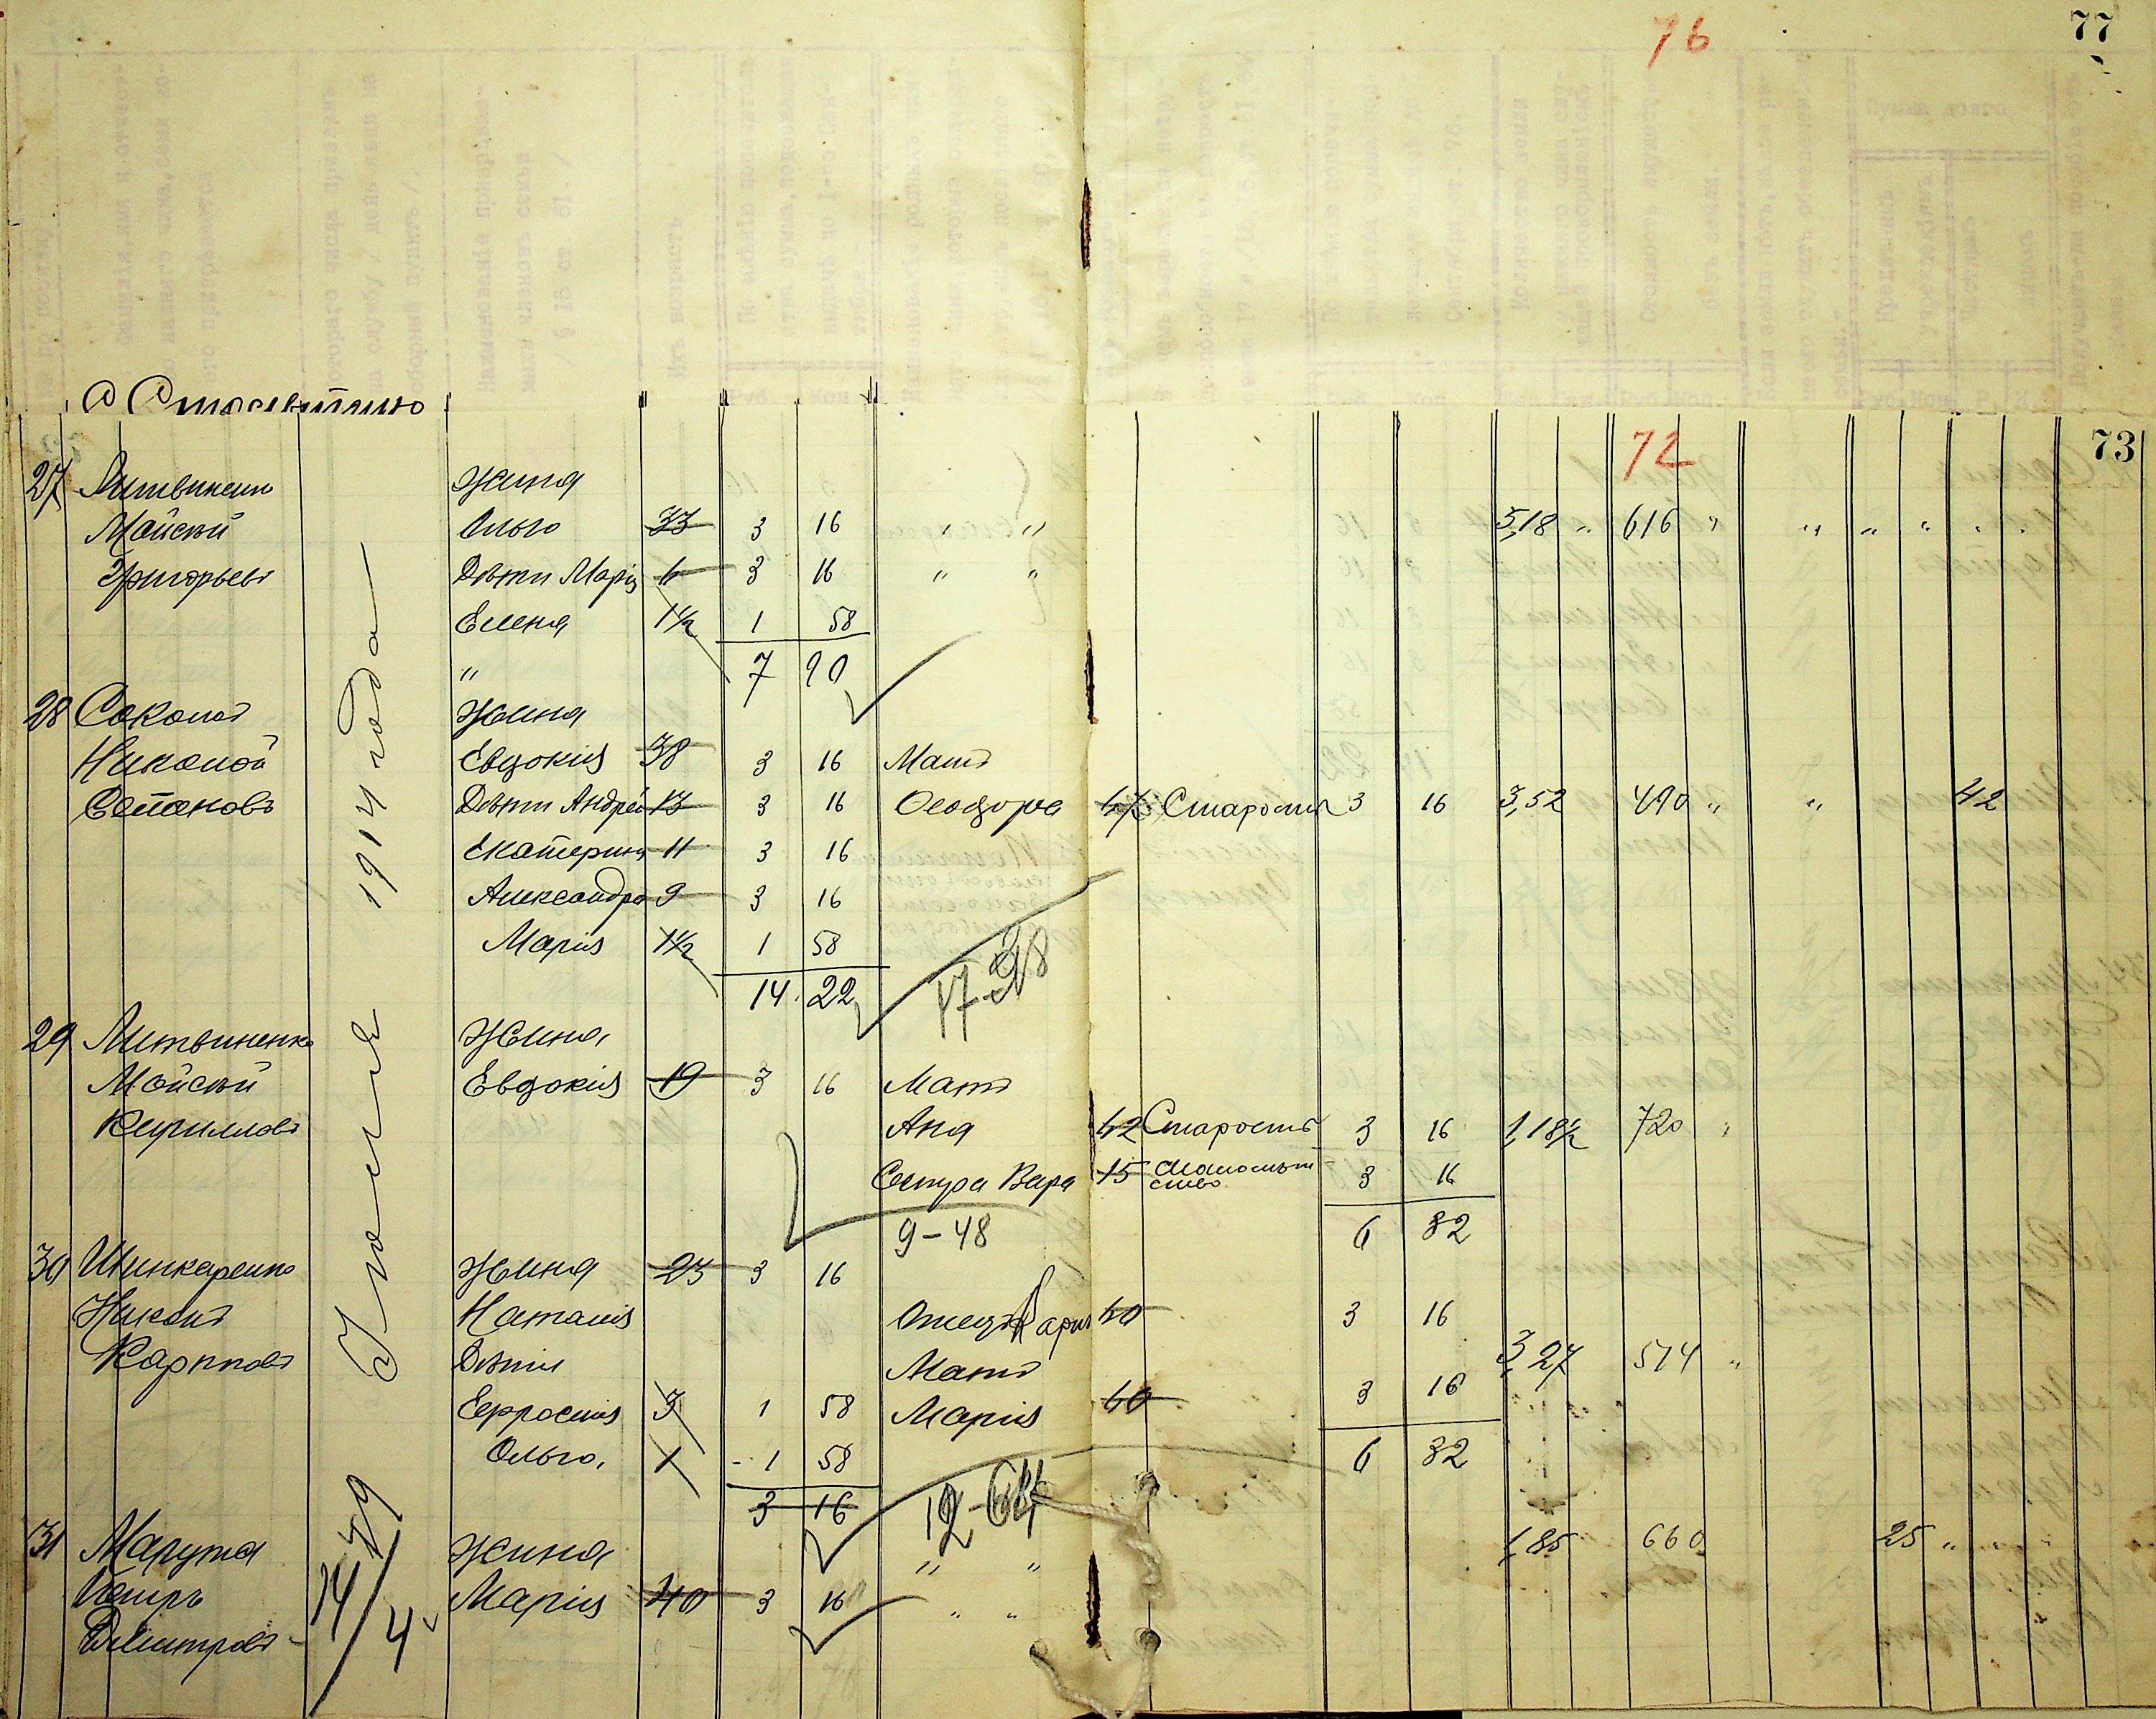 76
77
72
73
27 Литвинент Жина
Мойсей Ольга 33 3 16 " " 5,18 " 616 " " " " " "
Григорьевъ Дѣти Марія 6 3 16 " "
Елена 1½ 1 58
" 7 90
28 Соколъ Жина
Николай Евдокія 38 3 16 Мать
Степановъ Дѣти Андрей 13 3 16 Ѳеодора Старость 3 16 3,52 490 " " 42
Екатерина 11 3 16
Александра 9 3 16
Марія 1½ 1 58
14 22 17-38
29 Литвиненко Жина
Мойсей Евдокія 19 3 16 Мать
Кирилловъ Ана 42 Старость 3 16 1,18½ 720 "
Сестра Вера 15 Малолѣт
ство 3 16
9-48 6 32
30 Шинкаренко Жина 23 3 16
Никонъ Наталія Отецъ Карпъ 60 3 16
Карповъ Дѣти Мать 3,27 574 "
Ефросинія 3 1 58 Марія 60 3 16
Ольга 1 1 58 6 32
3 16 12-64
31 Марута Жина " " 1,85 660 25 " " "
Петръ Марія 40 3 16 " "
Дмитровъ
Іюля 1914 года